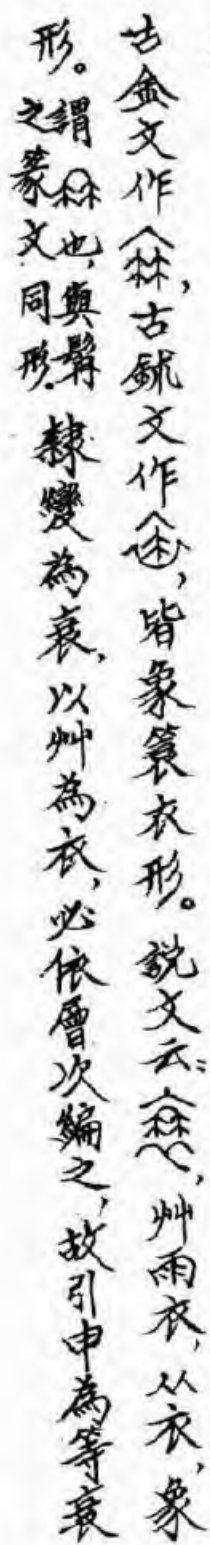 古金文作，古鉥文作，皆象簑衣形。說文云：，艸雨衣，从衣，象
形。謂也，與髯之篆文同形。隸變為衰，以艸為衣，必依層次編之，故引申為等衰